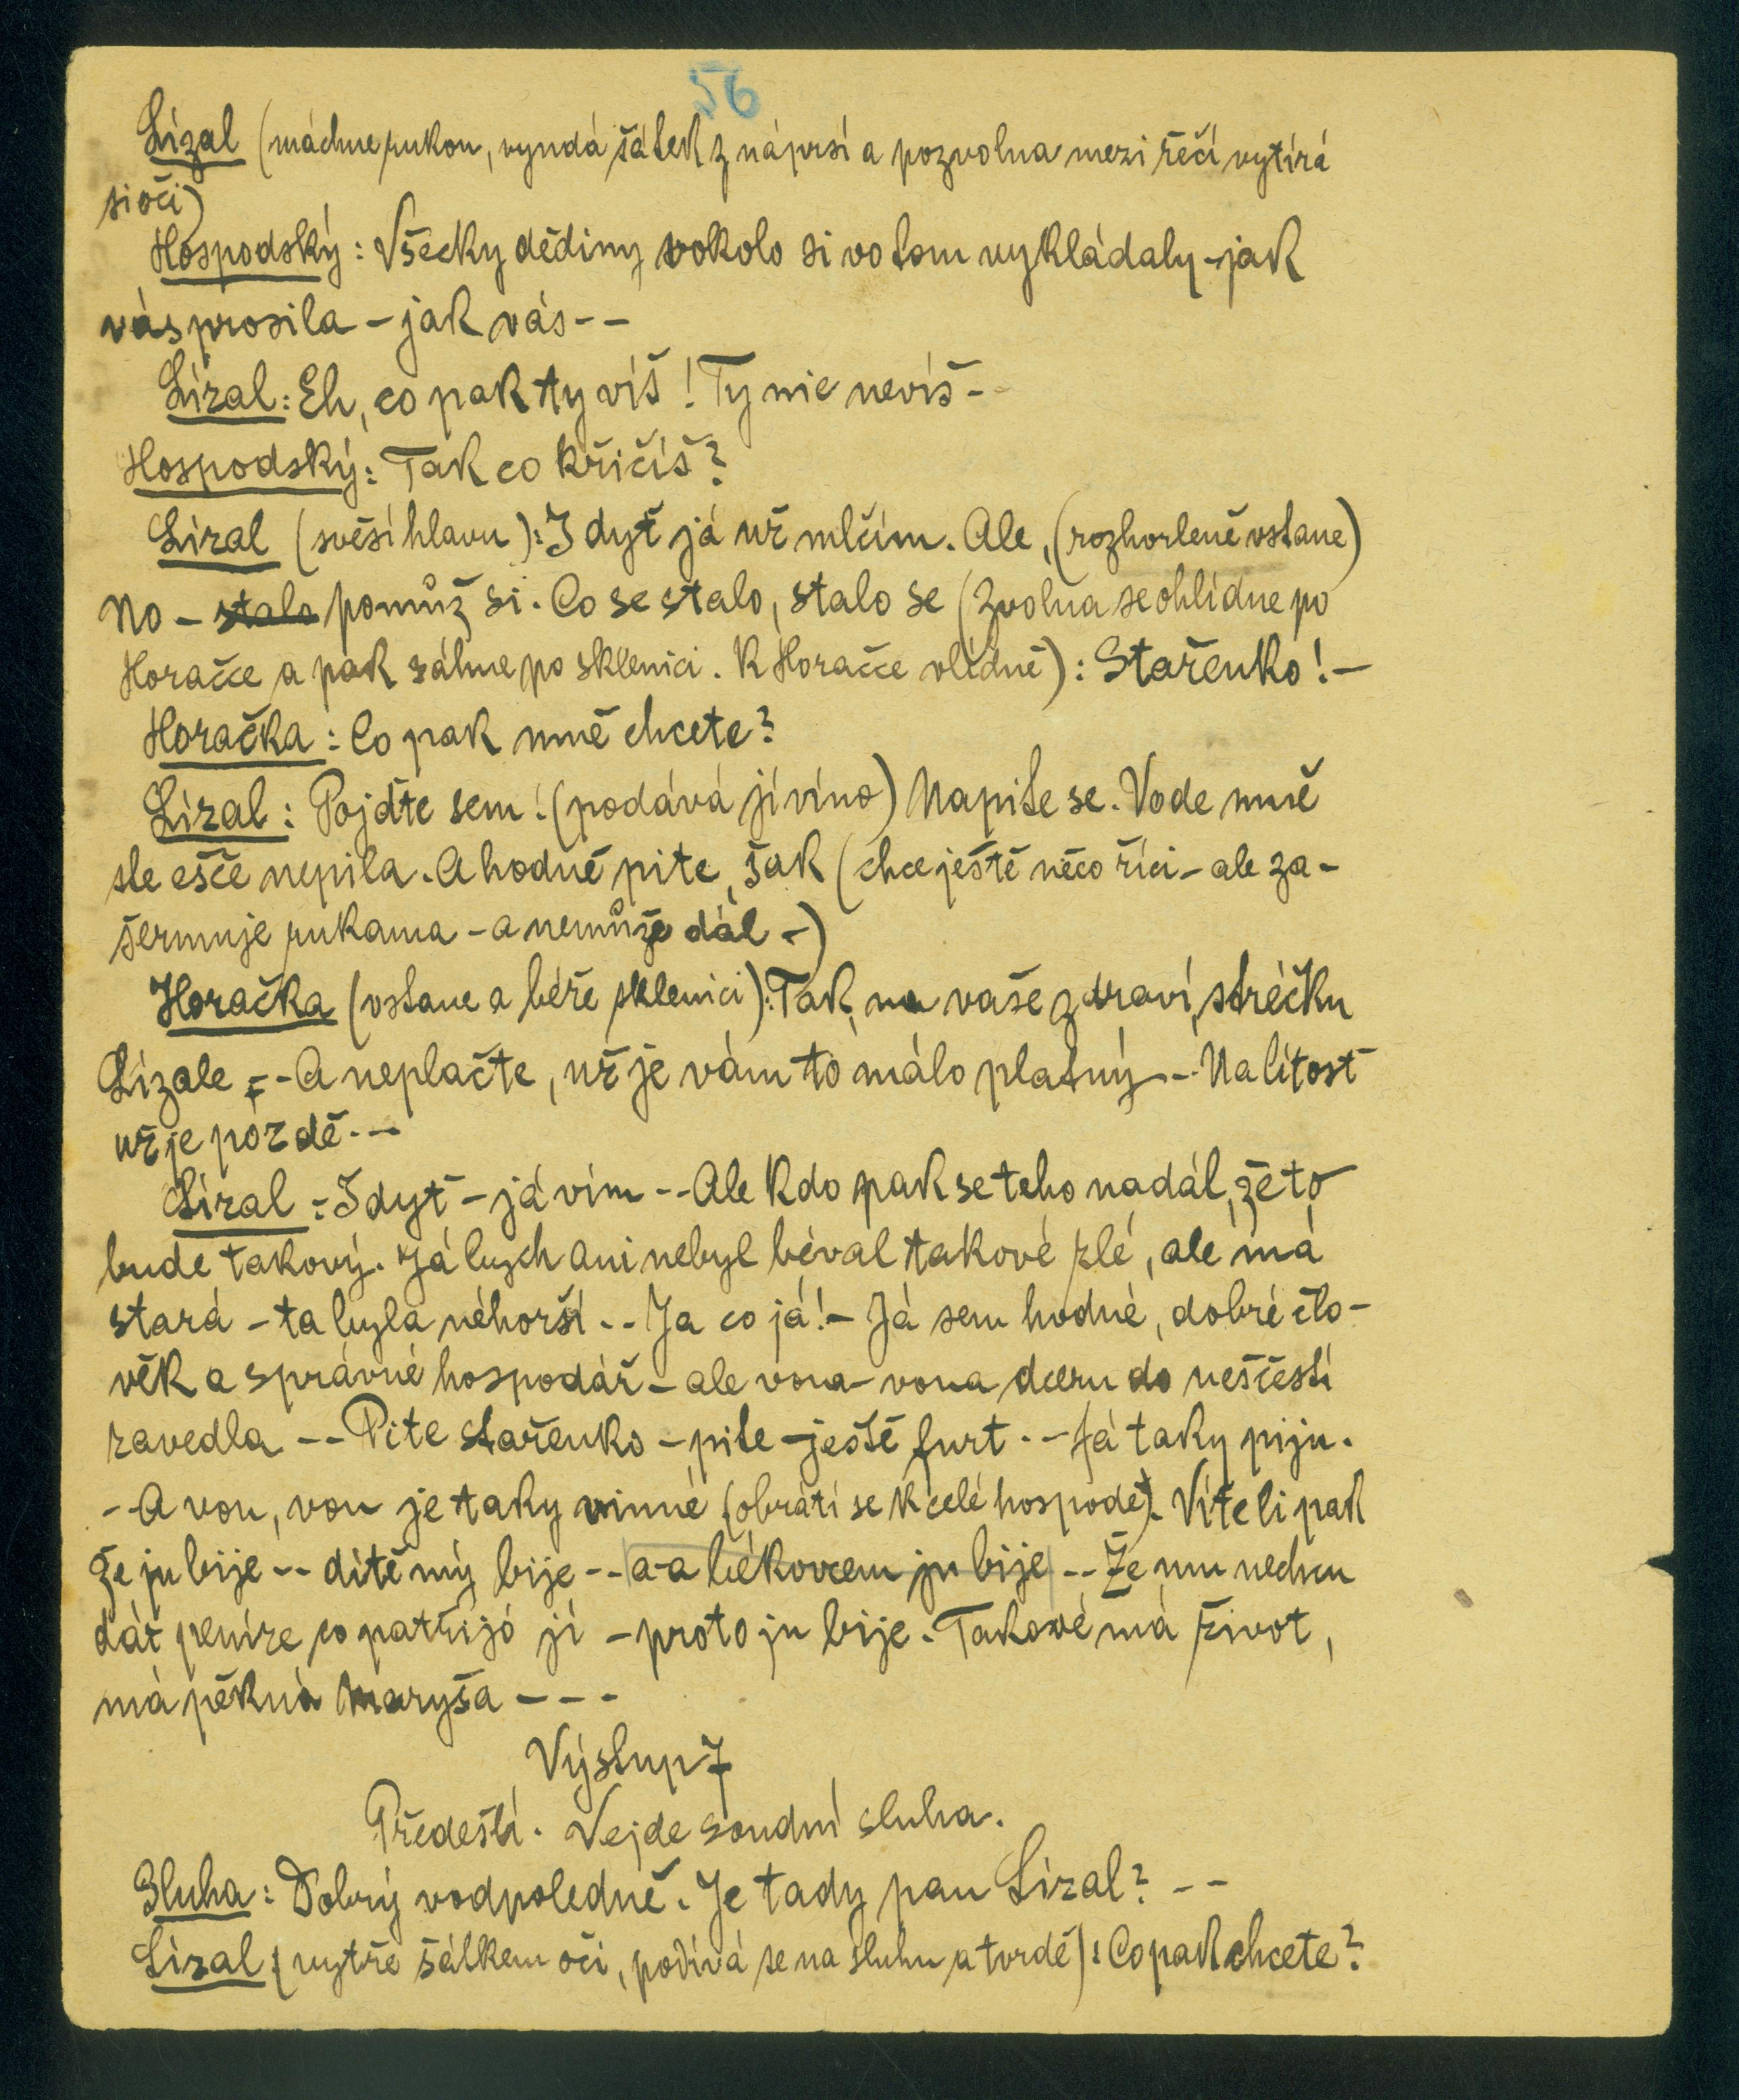 56
Lízal (máchne rukou, vyndá šátek z náprsí a pozvolna mezi řečí vytírá
si oči)
Hospodský: Všecky dědiny vokolo si vo tom vykládaly - jak
vás prosila - jak vás - -
Lízal: Eh, co pak ty víš! Ty nic nevíš - -
Hospodský: Tak co křičíš?
Lízal (svěsí hlavu): I dyť já už mlčím. Ale, (rozhorleně vstane)
No - stalo pomůž si. Co se stalo, stalo se (Zvolna se ohlídne po
Horačce a pak sáhne po sklenici. K Horačce vlídně): Stařenko! -
Horačka: Co pak mně chcete?
Lízal: Pojďte sem! (podává jí víno) Napite se. Vode mně
ste ešče nepila. A hodně pite, šak (chce ještě něco říci - ale za-
šermuje rukama - a nemůže dál -)
Horačka (vstane a béře sklenici): Tak, na vaše zdraví, stréčku
Lízale - - A neplačte, už je vám to málo platný - - Na lítosť
už je pozdě - -
Lízal: I dyť - já vím - - Ale kdo pak se teho nadál, že to
bude takový. Já bych ani nebyl béval takové zlé, ale má
stará - ta byla néhorší - - Ja co já! - Já sem hodné, dobré člo-
věk a správné hospodář - ale vona - vona dceru do neščestí
zavedla - - Pite stařenko - pite - ještě furt - - Já taky piju.
- A von, von je taky vinné (obrátí se k celé hospodě). Víte li pak
že ju bije - - dítě mý bije - - a - a békovcem ju bije - - Že mu nechcu
dát peníze co patřijó jí - proto ju bije. Takové má život,
má pěkná Maryša - - -
Výstup 7
Předešlí. Vejde soudní sluha.
Sluha: Dobrý vodpoledně. Je tady pan Lízal? - -
Lízal (vytře šátkem oči, podívá se na sluhu a tvrdě): Co pak chcete?